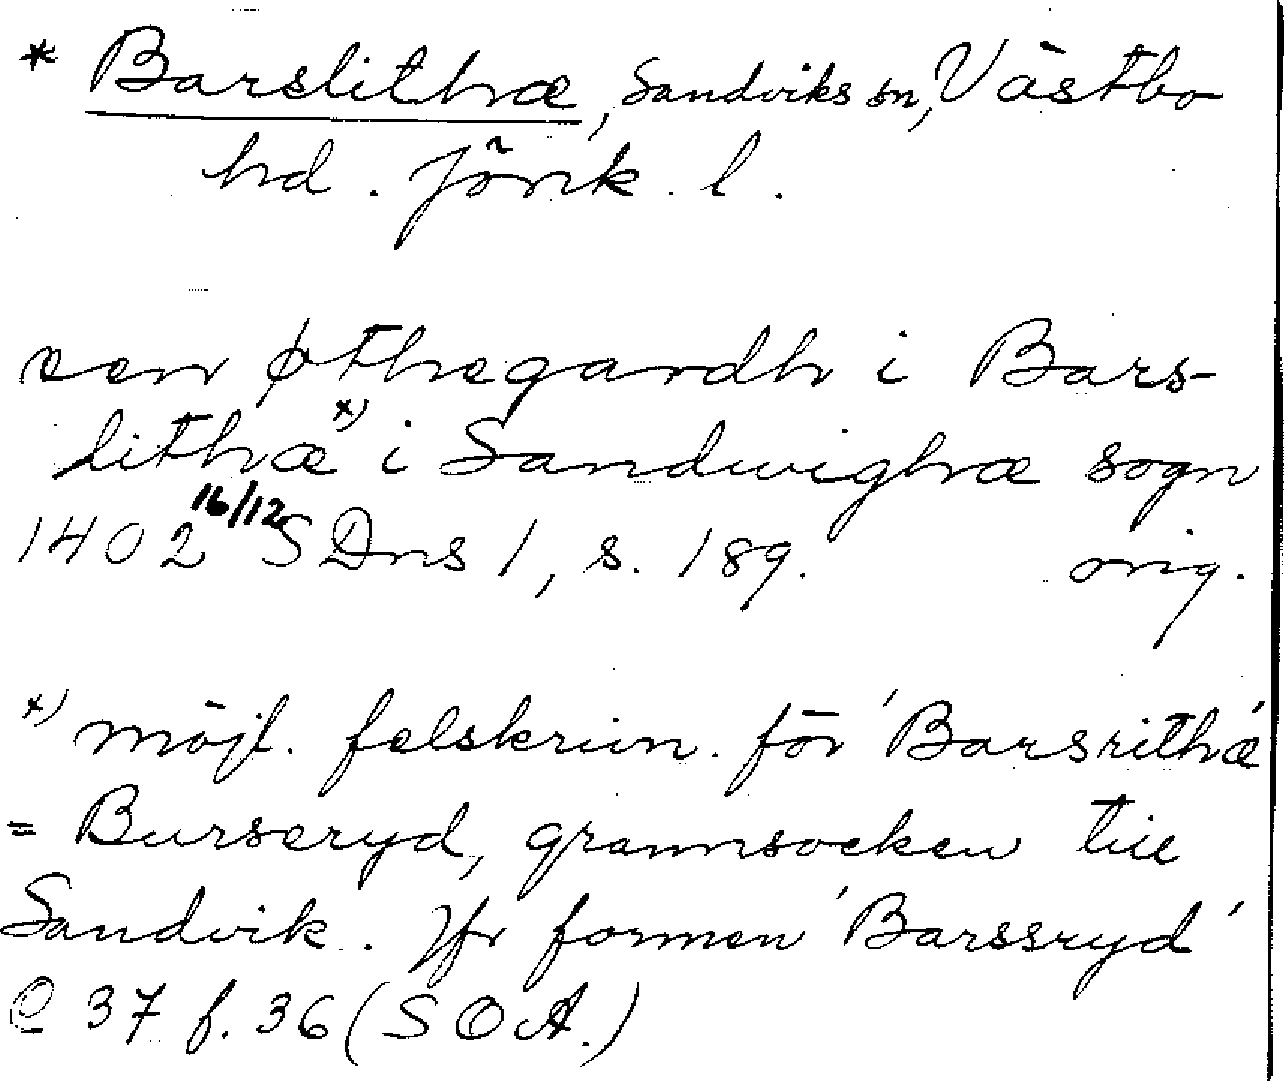 * Barslithæ, Sandviks sn, Västbo
hd. Jönk. l.
een øthegardh i Bars-
lithæ x) i Sandwighæ sogn
1402 16/12 SDns 1, s. 189. orig.
x) möjl. felskrivn. för 'Barsrithæ'
= Burseryd, grannsocken till
Sandvik. Jfr formen 'Barssryd'
C 37 f. 36 (SOA.)